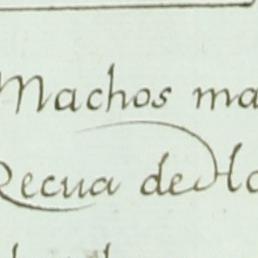 Machos ma
Recua de Ho